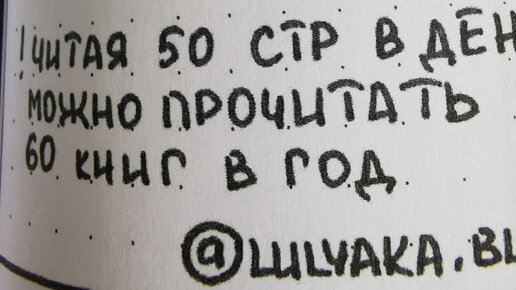 ! ЧИТАЯ 50 СТР В ДЕН
МОЖНО ПРОЧИТАТЬ
60 КНИГ В ГОД